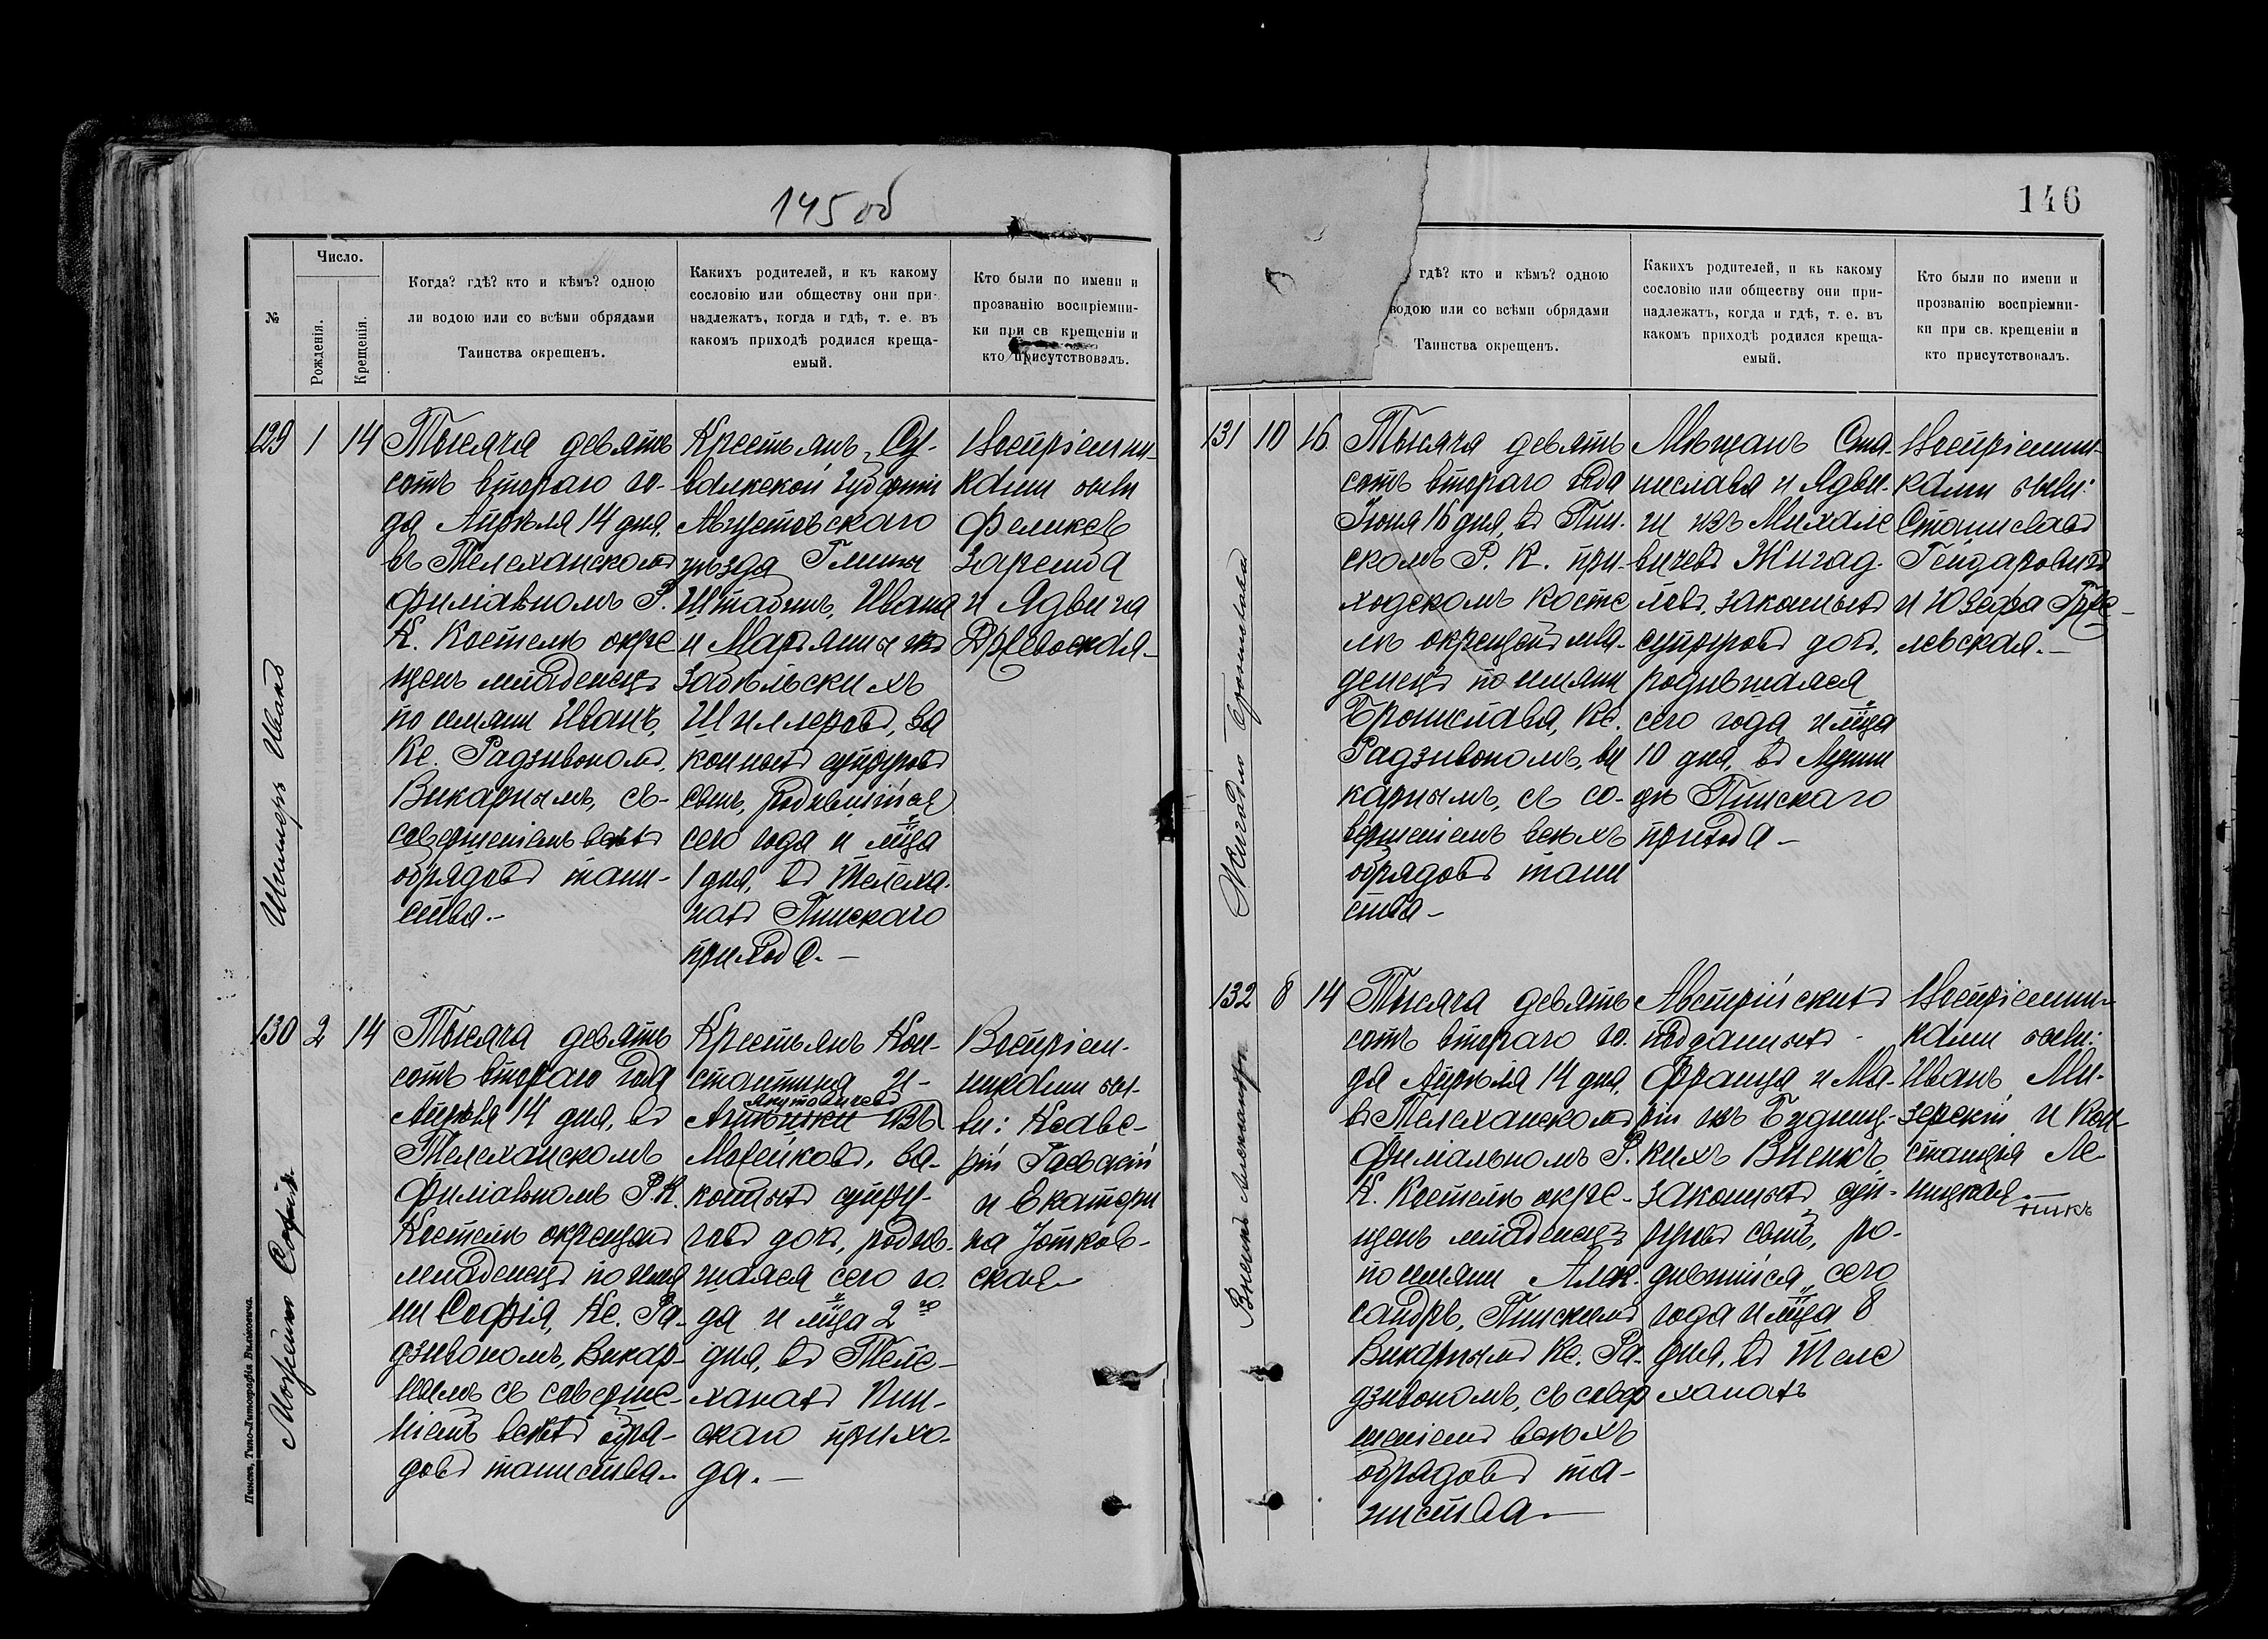 145 об
№
Число.
Рожденія.
Крещенія.
Когда? гдѣ? кто и кѣмъ? одною
ли водою или со всѣми обрядами
Таинства окрещенъ.
Какихъ родителей, и къ какому
сословію или обществу они при-
надлежатъ, когда и гдѣ, т. е. въ
какомъ приходѣ родился креща-
емый.
Кто были по имени и
прозванію воспріемни-
ки при св крещеніи и
кто присутствовалъ.
129
1
14
Шиллеръ Иванъ
Тысяча девять
сотъ второго го-
да Апрѣля 14 дня,
въ Телеханскомъ
филіальномъ Р.
К. Костелѣ окре
щенъ младенецъ
по имени Иванъ,
Кс. Радзивономъ,
Викарнымъ, съ
совершеніемъ всѣхъ
обрядовъ таин-
ства.-
Крестьянъ, Су-
валкской губерніи
Августовскаго
уѣзда Гмины
Штабинъ, Ивана
и Маріанны изъ
Забѣльскихъ
Шиллеровъ, за
конныхъ супруговъ
сынъ, родившійся
сего года и м-ца
1 дня, въ Телеха-
нахъ Пинскаго
прихода. -
Воспріемни-
ками были
Феликсъ
Заремба
и Ядвига
130
2
14
Можейко Софія
Тысяча девять
сотъ второго года
Апрѣля 14 дня, въ
Телеханскомъ
филіальномъ Р. К.
Костелѣ окрещенъ
младенецъ по име
ни Софія, Кс. Ра-
дзивономъ, Викар-
нымъ съ соверше-
ніемъ всѣхъ обря-
довъ таинства.
Крестьянъ Кон-
стантина и
Якутовичевъ
изъ
Можейковъ, за-
конныхъ супру-
говъ дочь, родив-
шаяся сего го-
да и м-ца 2 го
дня, въ Теле-
ханахъ Пин-
скаго прихо-
да. -
Воспріем-
никами бы-
ли: Ксаве-
рій Гаевскій
и Екатери
на Ютков-
ская
Пинскъ, Типо-Литографія Вильковича.
146
гдѣ? кто и кѣмъ? одною
водою или со всѣми обрядами
Таинства окрещенъ.
Какихъ родителей, и къ какому
сословію или обществу они при-
надлежатъ, когда и гдѣ, т. е. въ
какомъ приходѣ родился креща-
емый.
Кто были по имени и
прозванію воспріемни-
ки при св. крещеніи и
кто присутствовалъ.
131
10
16.
Жигадло Бронислава
Тысяча девять
сотъ второго года
Іюня 16 дня, въ Пин-
скомъ Р. К. при-
ходскомъ Косте
лѣ окрещенъ мла-
денецъ по имени
Бронислава, Кс.
Радзивономъ, ви
карнымъ, съ со-
вершеніемъ всѣхъ
обрядовъ таин
ства -
Мѣщанъ Ста-
нислава и Ядви-
ги изъ Михале
вичевъ Жигад-
ловъ, законныхъ
супруговъ дочь,
родившаяся
сего года и м-ца
10 дня, въ
Пинскаго
прихода -
Воспріемни-
ками были:
Станиславъ
Гейдаровичъ
и Юзефа
левская. -
132
8
14
Вненкъ Александръ
Тысяча девять
сотъ второго го-
да Апрѣля 14 дня,
въ Телеханскомъ
филіальномъ Р.
К. Костелѣ окре-
щенъ младенецъ
по имени Алек-
сандръ, Пинскимъ
Викарнымъ Кс. Ра-
дзивономъ, съ совер
шеніемъ всѣхъ
обрядовъ та-
инства -
Австрійскихъ
подданныхъ -
Франца и Ма-
ріи изъ Будниц-
кихъ Вненкъ,
законныхъ суп-
руговъ сынъ, ро-
дившійся сего
года и м-ца 8
дня, въ Теле
ханахъ
Воспріемни-
ками были:
Иванъ Ми-
зерскій и Кон-
станція Ле-
ницкая